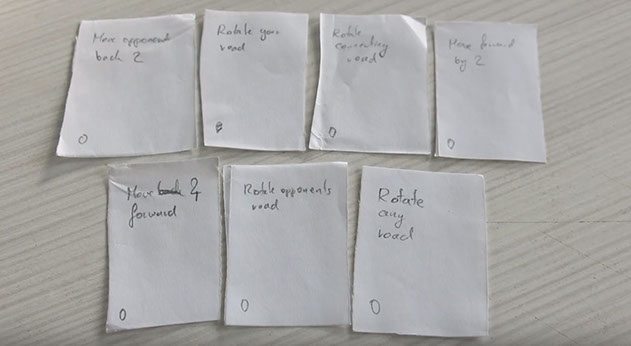 Move opponent
back 2
0
Rotate your
road
0
Rotate
connecting
road
0
Move forward
by 2
0
Move back 4
forward
0
Rotate opponents
road
0
Rotate
any
road
0